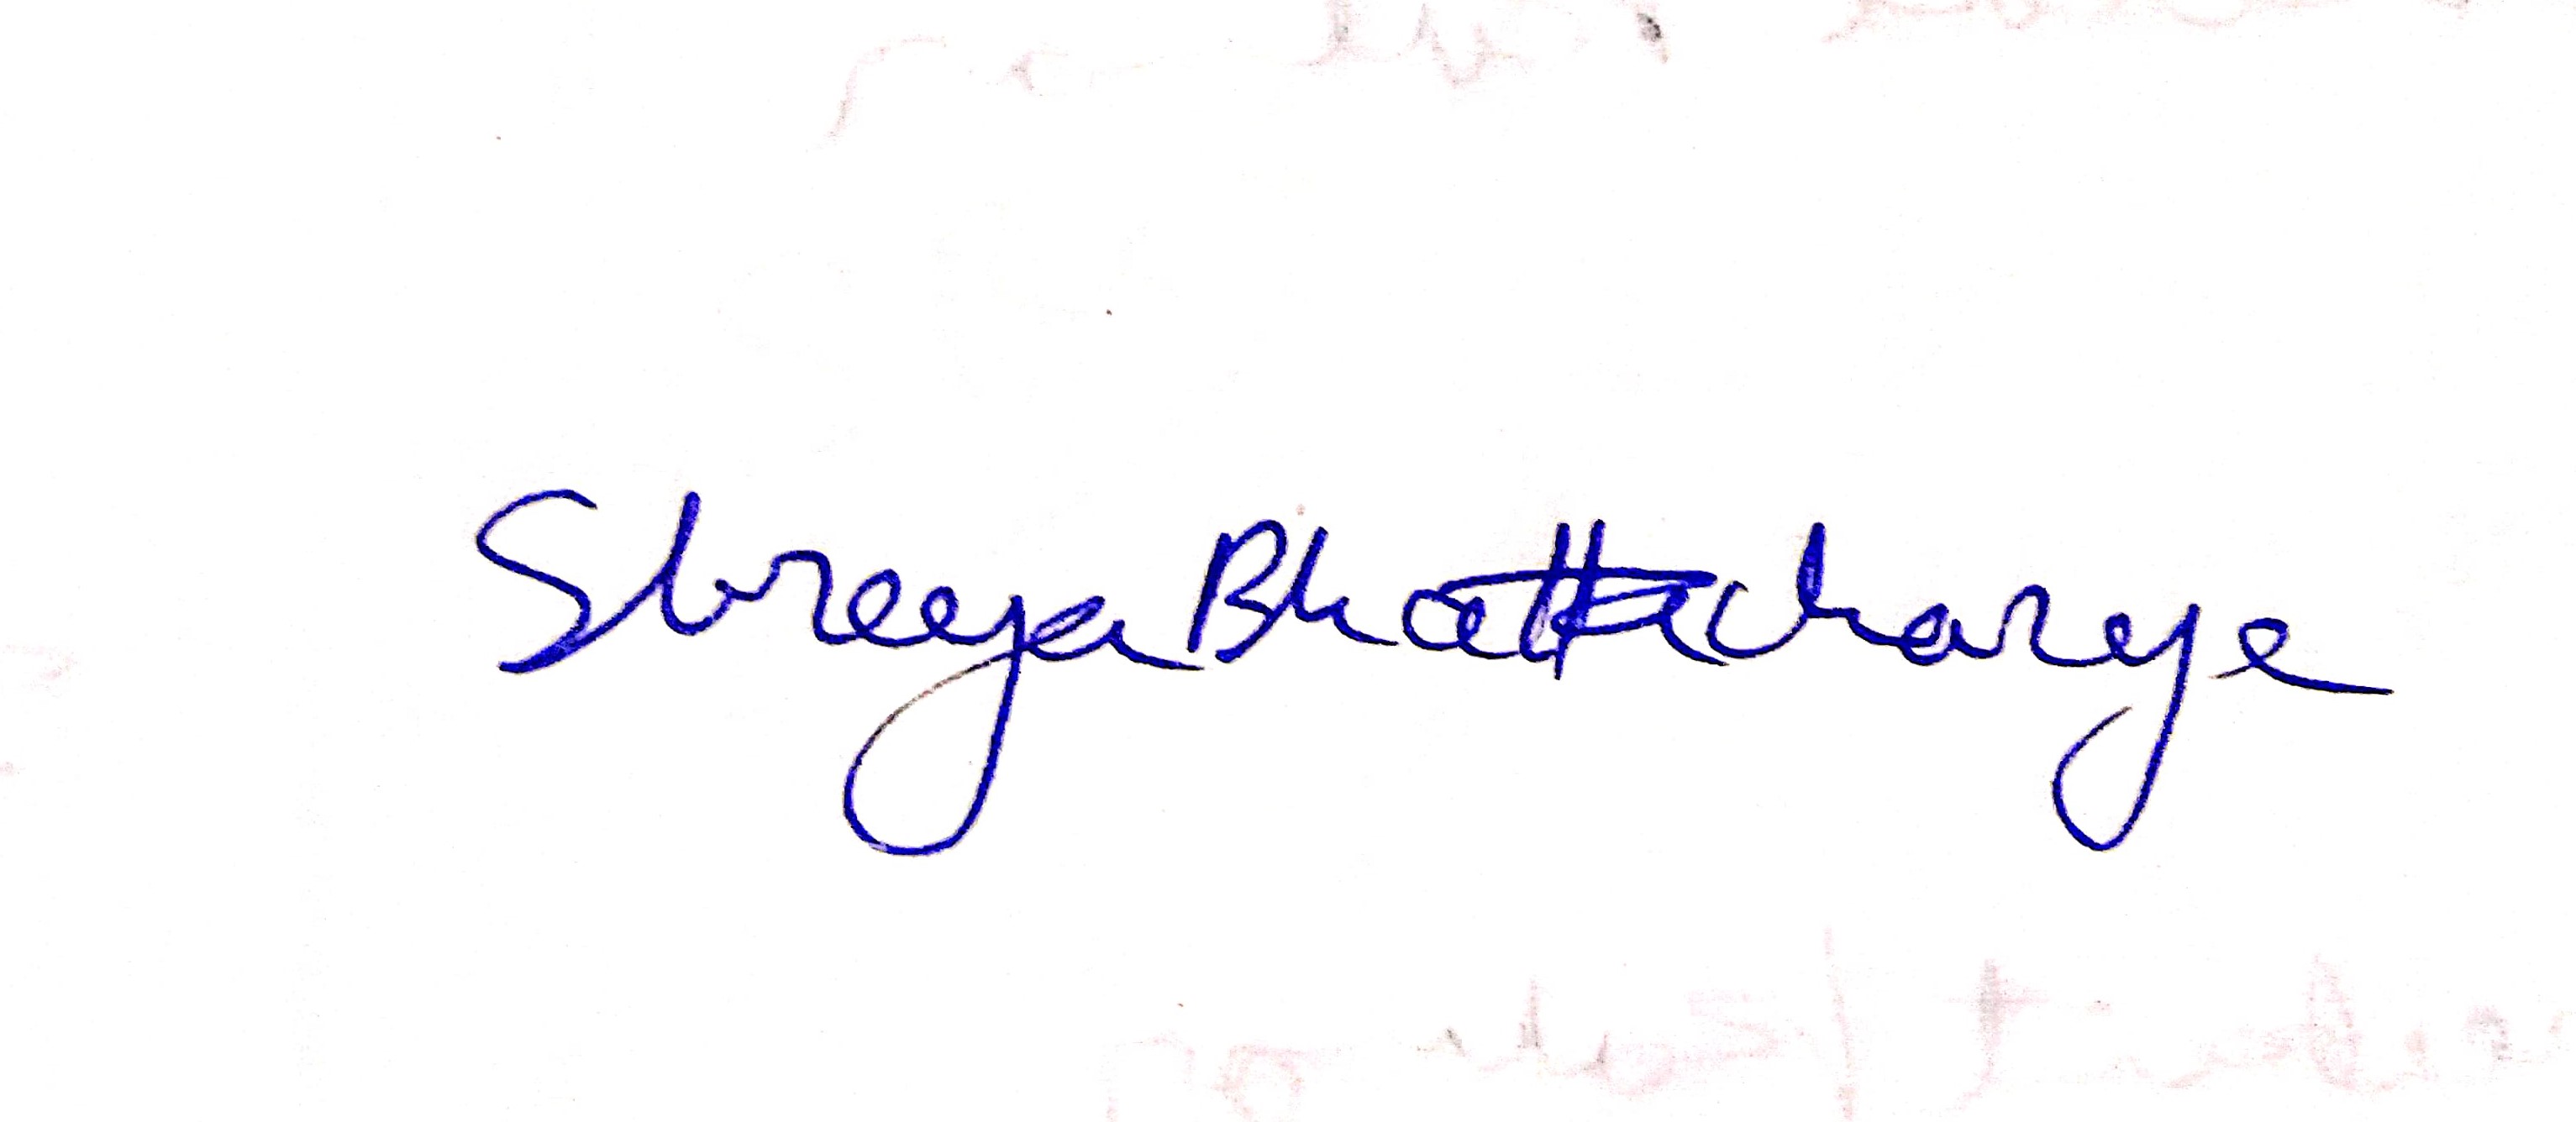 Shreeya Bhattacharya